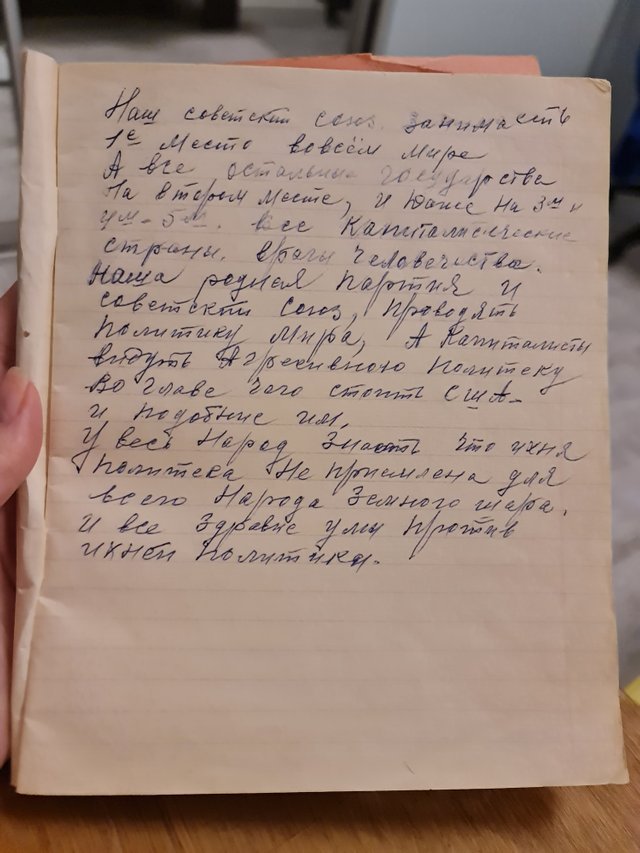 Наш советский союз. занимаеть
1е место вовсём мире
А все остальные государства
На втором месте, и даже на 3м и
4м - 5м. все Капиталисческие
страны. враги человечества.
Наша родная партия и
советский союз, проводять
политику мира, А Капиталисты
видуть Агресивною политеку
во главе чего стоить США-
и подобние им.
У весь народ знаеть что ихня
политека не приемлена для
всего народа земного шара.
И все здравие умы против
ихней политики.